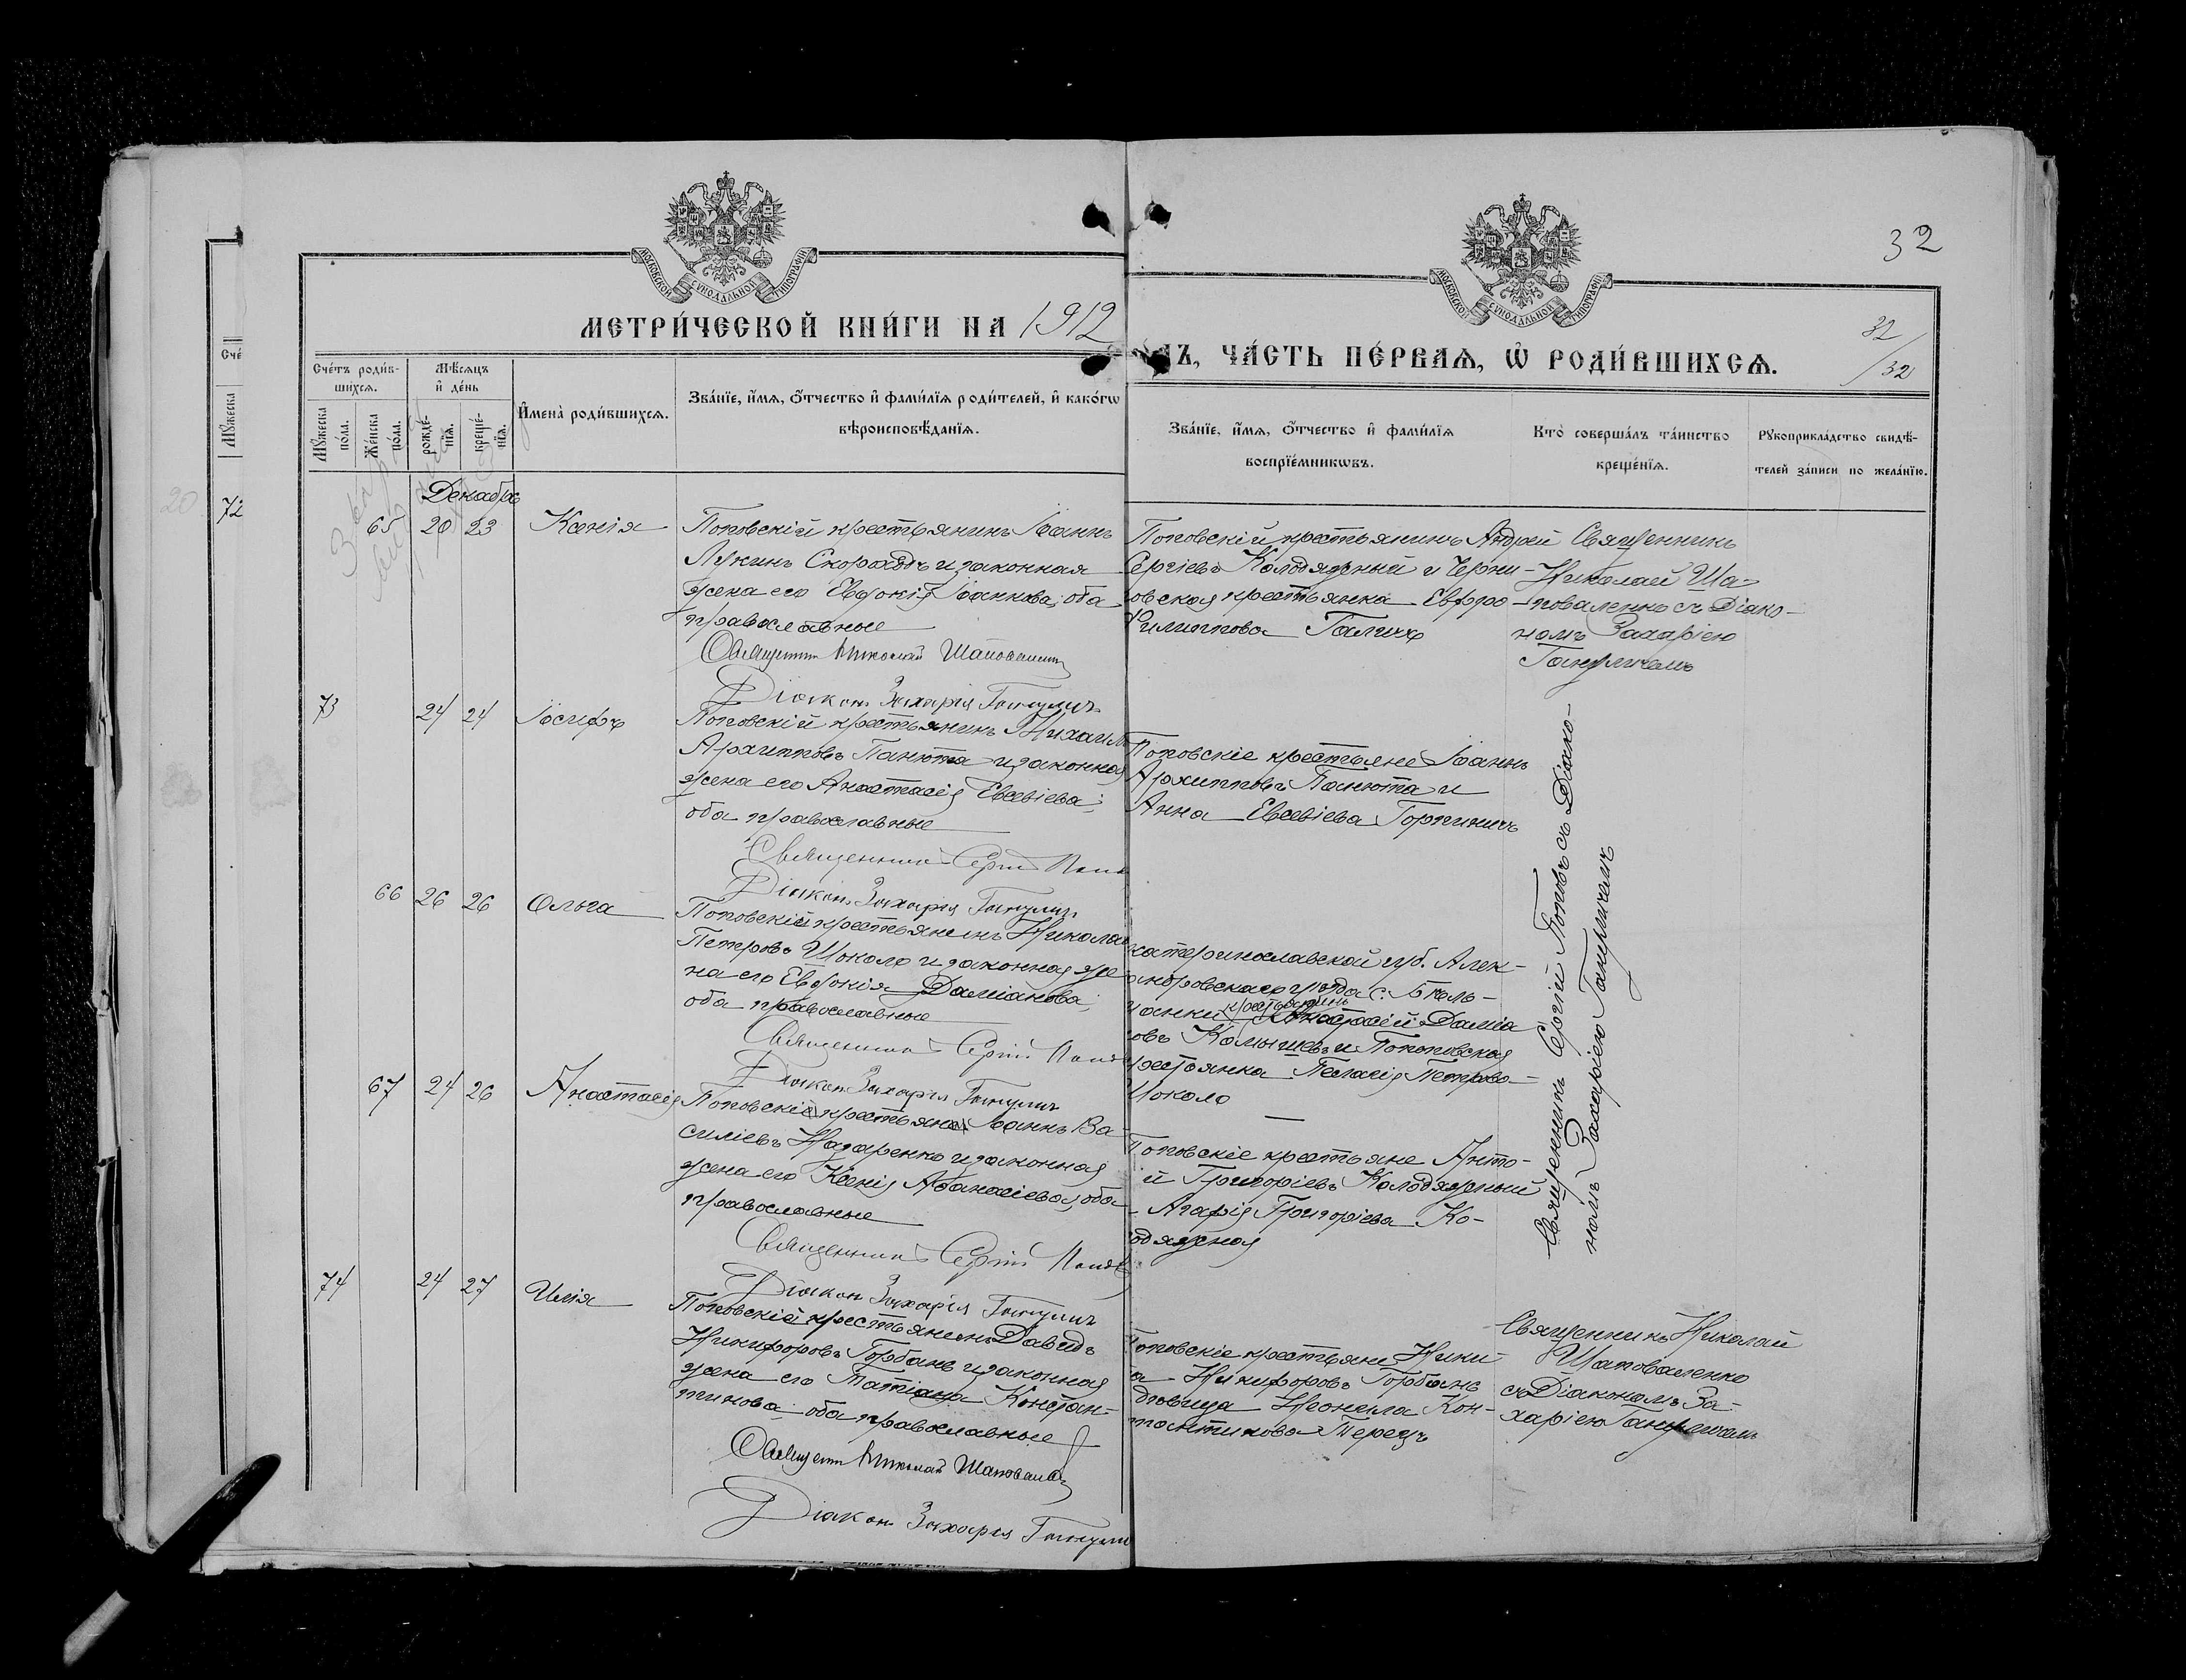 32
МОСКОВСКОЙ СУНОДАЛЬНОЙ ТИПОГРАФІИ
МОСКОВСКОЙ СУНОДАЛЬНОЙ ТИПОГРАФІИ
МЕТРИ́ЧЕСКОЙ КНИ́ГИ НА 1912
ДЪ, ЧА́СТЬ ПЕ́РВАѦ, Ѿ РОДИ́ВШИХСѦ.
32/32
Сче́
Мꙋжеска
Сче́тъ роди́в-
шихсѧ.
Мꙋжеска по́ла.
Же́нска по́ла.
Мѣ́сѧцъ и҆ де́нь
рожде́-нїѧ.
креще́-нїѧ.
И҆мена̀ роди́вшихсѧ.
Зва́нїе, и҆́мѧ, ѻ҆́тчество и҆ фами́лїѧ роди́телей, и҆ како́гѡ
вѣроисповѣ́данїѧ.
Зва́нїе, и҆́мѧ, ѻ҆́тчество и҆ фами́лїѧ
воспрїе́мникѡвъ.
Кто̀ соверша́лъ та́инство
креще́нїѧ.
Рꙋкоприкла́дство свидѣ́-
телей за́писи по жела́нїю.
20
72
Декабрь
65 20 23 Ксенія
Поповскій крестьянинъ Іоаннъ
Лукинъ Скороходъ и законная
жена его Евдокія Іоаннова; оба
православные
Священник Николай Шаповаленко
Діакон Захарія Ганжулич
Поповскій крестьянинъ Андрей
Сергіевъ Колодяжный и Черни-
овская крестьянка Евфро-
Филиппова Галичъ
Священникъ
Николай Ша-
поваленко съ Діако-
номъ Захаріею
73 24 24 Іосифъ
Поповскій крестьянинъ Михаилъ
Архипповъ Панюта и законная
жена его Анастасія Евсевіева;
оба православные
Священникъ Сергій Попов
Діакон Захарія
Поповскіе крестьяне Іоаннъ
Архипповъ Панюта и
Анна Евсевіева
Священникъ Сергій Поповъ съ Діако-
номъ Захаріею
66 26 26 Ольга
Поповскій крестьянинъ Николай
Петровъ Шоколо и законная же-
на его Евдокія Даміанова;
оба православные
Священникъ Сергій Попов
Діакон Захарія
катеринославской губ. Алек-
андровскаго уѣзда с. Бѣль-
крестьянинъ
Даміа
овъ и Поповская
рестьянка Пелагія Петрова
Шоколо
67 24 26 Анастасія
Поповскій крестьянин Іоаннъ Ва-
силіевъ Назаренко и законная
жена его Ксенія Аѳанасіева; оба
православные
Священникъ Сергій Попов
Діакон Захарія
Поповскіе крестьяне Анто-
й Григоріевъ Колодяжный
Агафія Григоріева Ко-
одяжная
74 24 27 Илія
Поповскій крестьянинъ Давидъ
Никифоровъ Горбань и законная
жена его Татіана Констан-
тинова; оба православные
Священник Николай Шаповаленко
Діакон Захарія
Поповскіе крестьяне Ники-
а Никифоровъ Горбань
дѣвица Неонила Кон-
тантинова
Священникъ Николай
Шаповаленко
съ Діакономъ За-
харіею